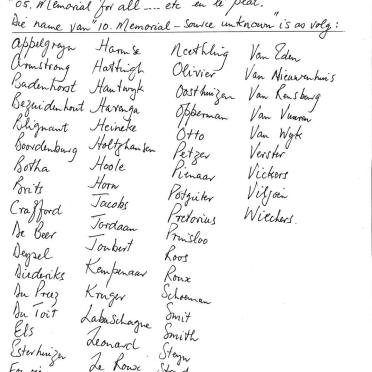 "05. Memorial for all ..... etc en le plat.
Die name van "10. Memorial - Source unknown" is as volg:
Appelgreyn
Armstrong
Badenhorst
Bezuidenhout
Blignaut
Boordenburg
Botha
Brits
Crafford
De Beer
Deysel
Diederiks
Du Preez
Du Toit
Els
Esterhuizen
Harmse
Hattingh
Hartwyk
Havenga
Heineke
Holtzhausen
Hoole
Horn
Jacobs
Jordaan
Joubert
Kempenaar
Kruger
Labuschagne
Leonard
Le Roux
Neethling
Olivier
Oosthuizen
Opperman
Otto
Petzer
Pienaar
Potgieter
Pretorius
Prinsloo
Roos
Roux
Schoeman
Smit
Smith
Steyn
Van Eden
Van Nieuwenhuis
Van Rensburg
Van Vuuren
Van Wyk
Verster
Vickers
Viljoen
Wiechers.